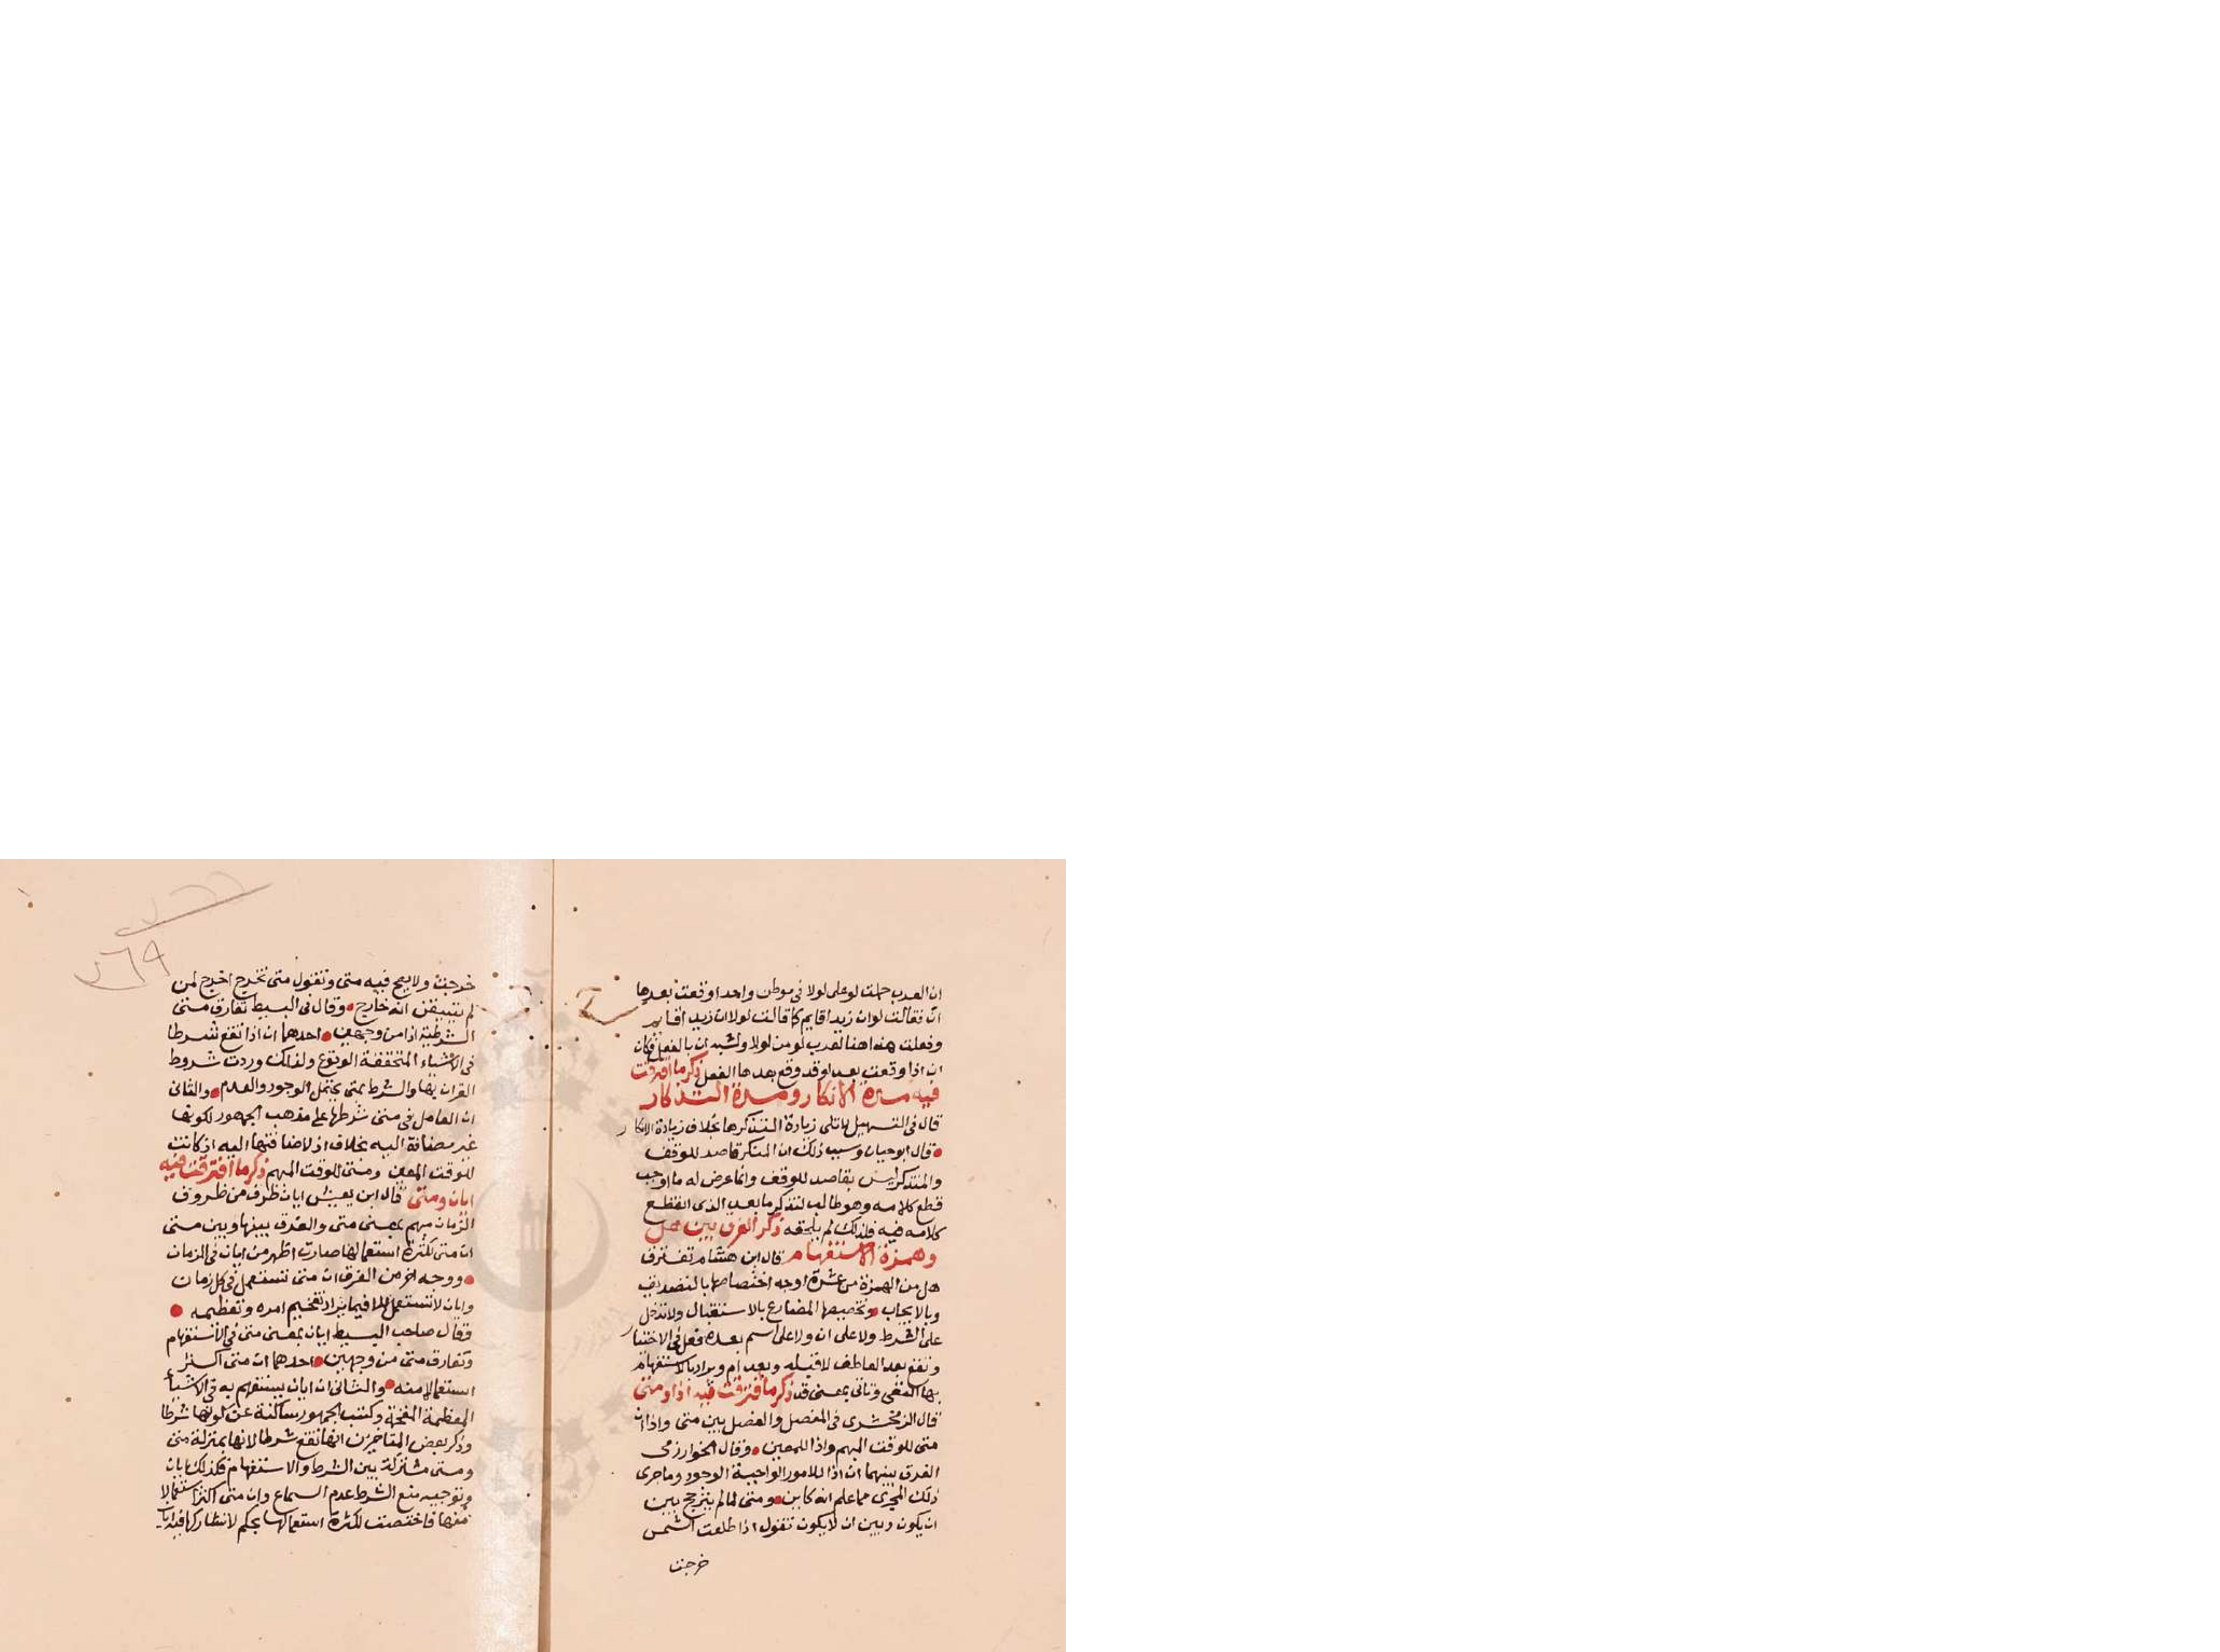 ان العرب حملت لو على لولا في موطن واحد اوقعت بعدها
ان فقالت لو ان زيدا قايم كما قالت لولا ان زيدا قايم
وفعلت هذا هنا لقرب لو من لولا ولشبه ان بالفعل فكان
ان اذا وقعت بعد لو قد وقع بعدها الفعل ذكر ما افترقت
فيه مدة الانكار ومدة التذكار
قال في التسهيل لا تلى زيادة التذكرها بخلاف زيادة الانكار
قال ابو حيان وسبب ذلك ان المنكر قاصد للوقف
والمتذكر ليس بقاصد للوقف وانما عرض له ما اوجب
قطع كلامه وهو طالب لتذكر ما بعد الذي انقطع
كلامه فيه فلذلك لم يلحقه ذكر الفرق بين هل
وهمزة الاستفهام قال ابن هشام تفترق
هل من الهمزة من عشرة اوجه اختصاصها بالتصديق
وبالايجاب وتخصيصها المضارع بالاستقبال ولا تدخل
على الشرط ولا على ان ولا على اسم بعده فعل في الاختيار
وتقع بعد العاطف لا قبله وبعد ام ويراد بالاستفهام
بها النفي وتاتي بمعنى قد ذكر ما افترقت فيه اذا ومتى
قال الزمخشري في المفصل والفصل بين متى واذا ان
متى للوقت المبهم واذا للمعين وقال الخوارزمي
الفرق بينهما ان اذا للامور الواجبة الوجود وما جرى
ذلك المجرى مما علم انه كاين ومتى لما لم يترجح بين
ان يكون وبين ان لا يكون تقول اذا طلعت الشمس
خرجت
٢٦٩
خرجت ولا يصح فيه متى وتقول متى تخرج اخرج لمن
لم يتيقن انه خارج وقال في البسيط تفارق متى
الشرطية اذا من وجهين احدهما ان اذا تقع شرطا
في الاشياء المتحققة الوقوع ولذلك وردت شروط
القران بها والشرط بمتى يحتمل الوجود والعدم والثاني
ان العامل في متى شرطها على مذهب الجمهور لكونها
غير مضافة اليه بخلاف اذا لاضافتها اليه اذ كانت
للوقت المعين ومتى للوقت المبهم ذكر ما افترقت فيه
ايان ومتى قال ابن يعيش ايان ظرف من ظروف
الزمان مبهم بمعنى متى والفرق بينها وبين متى
ان متى لكثرة استعمالها صارت اظهر من ايان في الزمان
ووجه اخر من الفرق ان متى تستعمل في كل زمان
وايان لا تستعمل الا فيما يراد تفخيم امره وتعظيمه
وقال صاحب البسيط ايان بمعنى متى في الاستفهام
وتفارق متى من وجهين احدهما ان متى اكثر
استعمالا منه والثاني ان ايان يستفهم به في الاشياء
المعظمة المفخمة وكتب الجمهور ساكتة عن كونها شرطا
وذكر بعض المتاخرين انها تقع شرطا لانها بمنزلة متى
ومتى مشتركة بين الشرط والاستفهام فكذلك ايان
وتوجيه منع الشرط عدم السماع وان متى اكثر استعمالا
منها فاختصت لكثرة استعمالها بحكم لا تشاركها فيه ايان